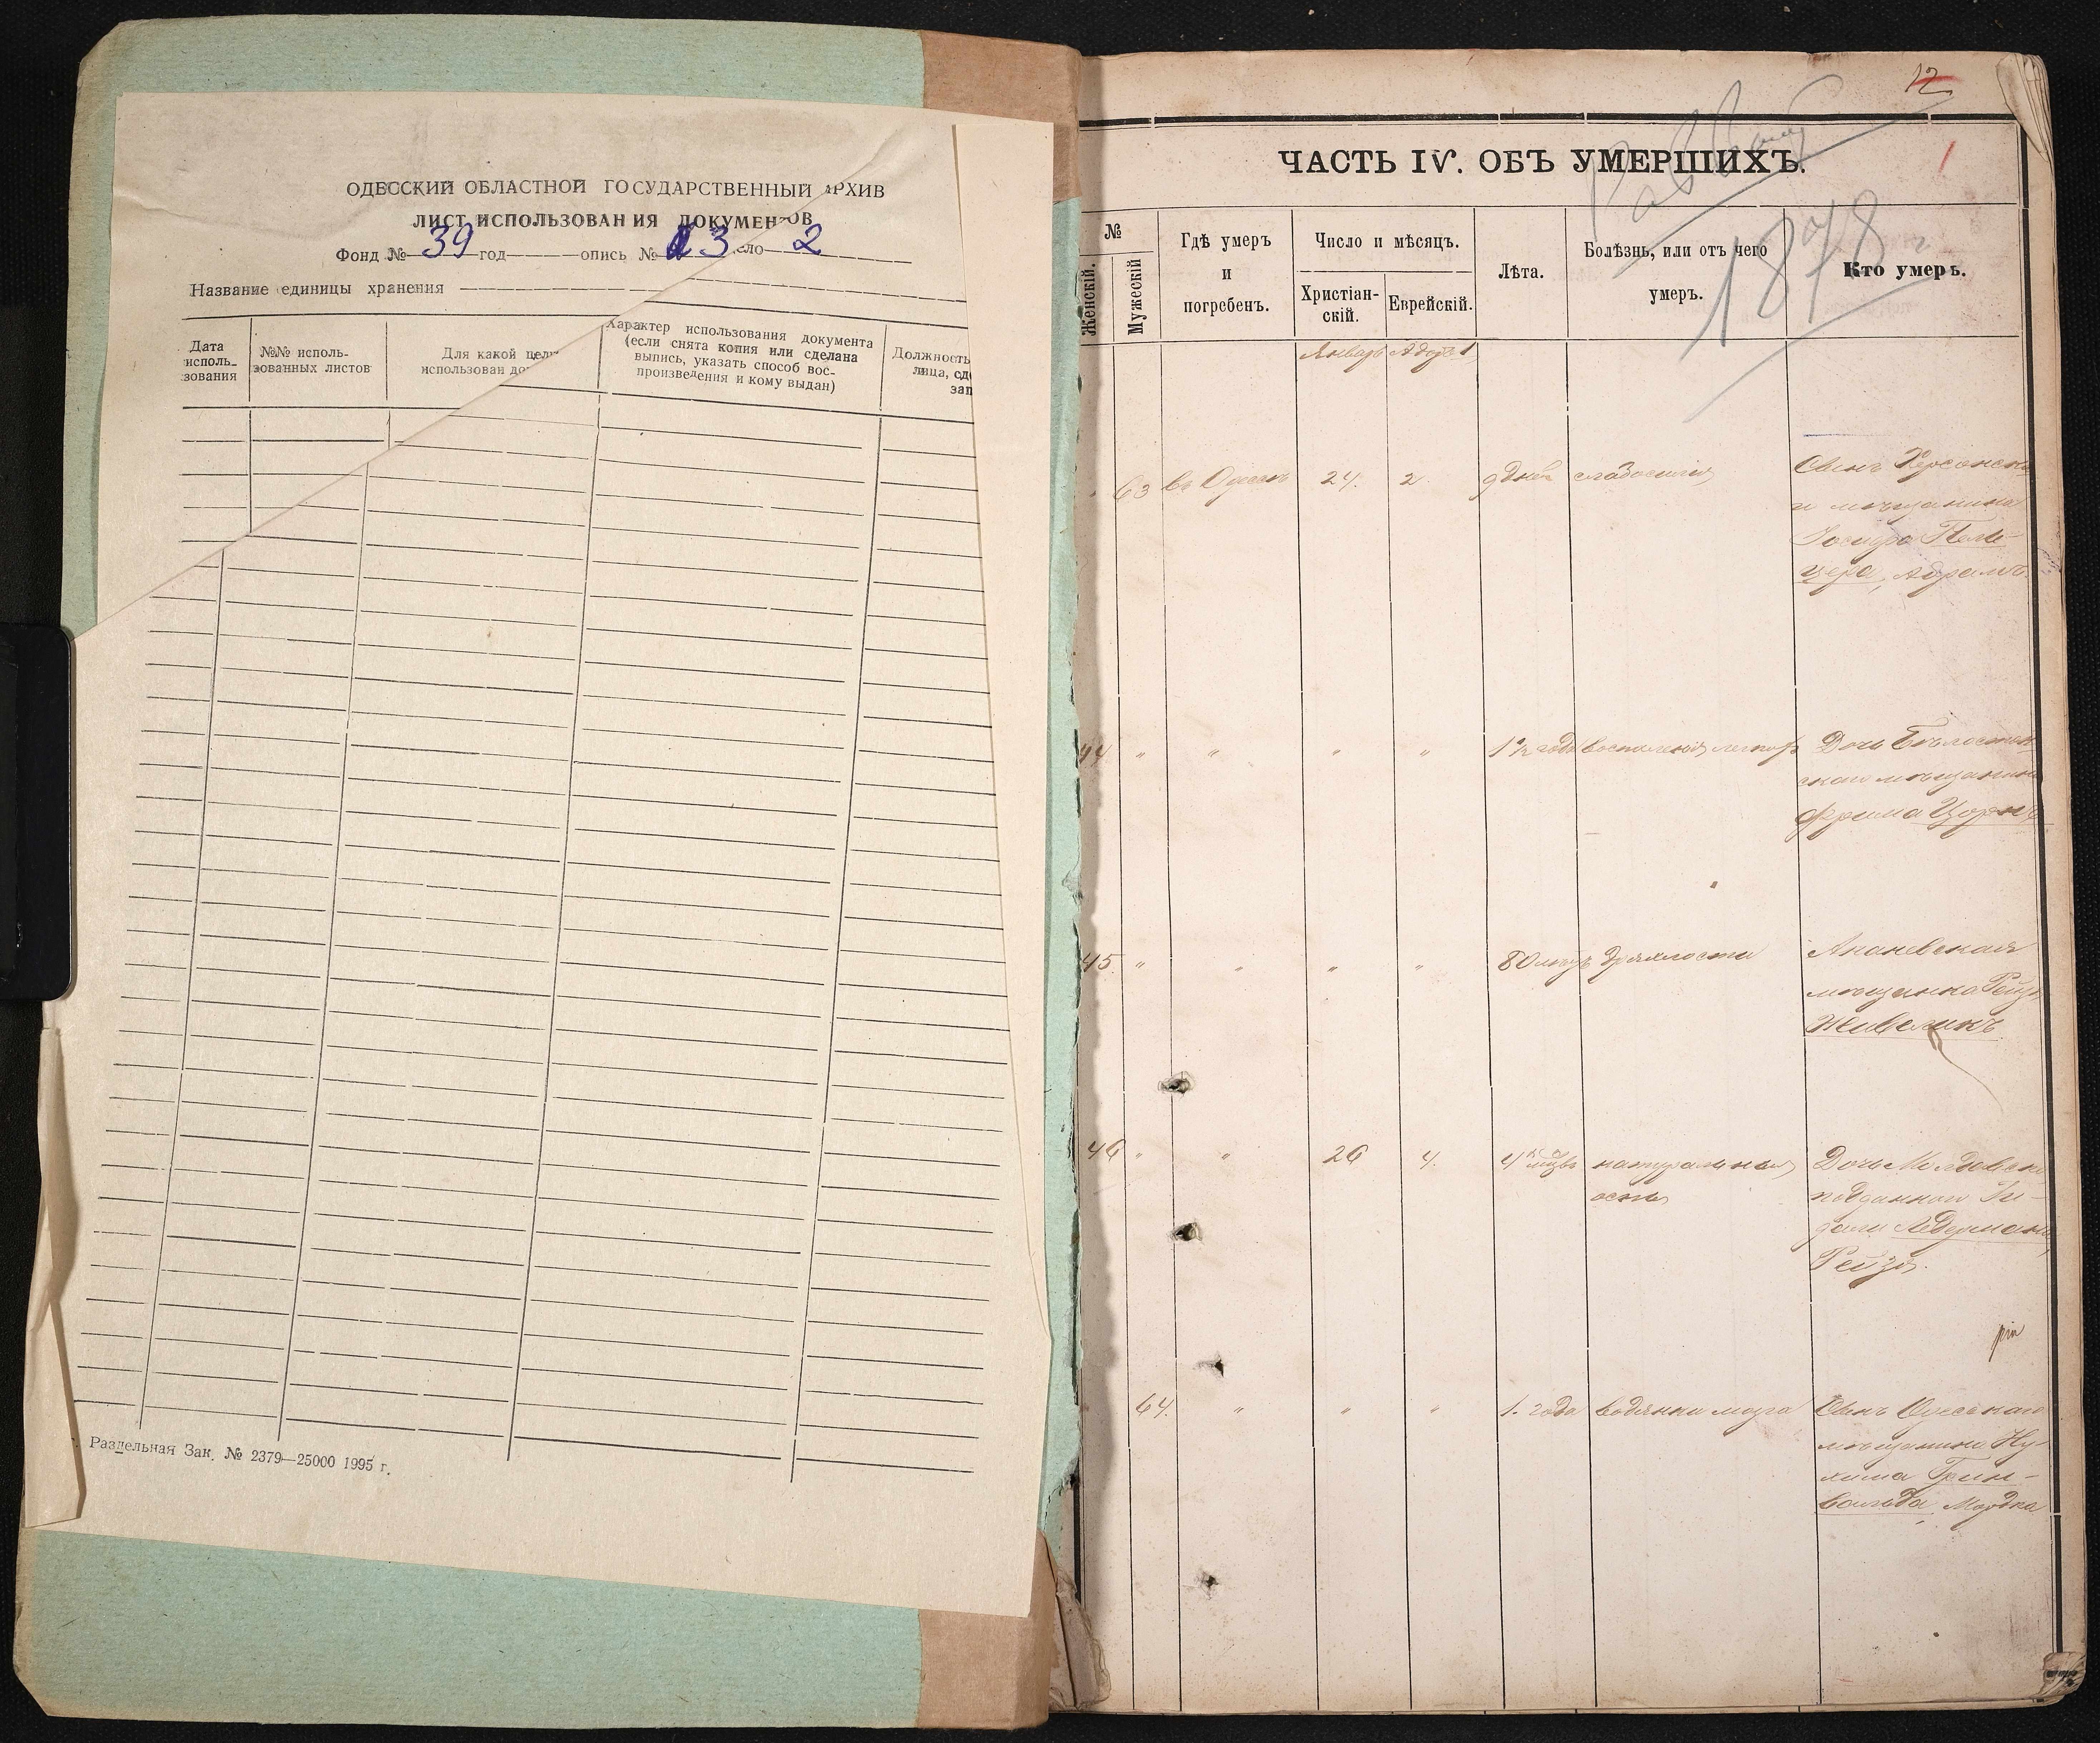 ОДЕССКИЙ ОБЛАСТНОЙ ГОСУДАРСТВЕННЫЙ АРХИВ
ЛИСТ ИСПОЛЬЗОВАНИЯ ДОКУМЕНТОВ
Фонд № 39 год опись № 3 ело 2
Название единицы хранения
Дата исполь-зования
№№ исполь-зованных листов
Для какой цели
использован до
Характер использования документа
(если снята копия или сделана
выпись, указать способ вос-
произведения и кому выдан)
Должность
лица, сде
зап
Раздельная Зак. № 2379—25000 1995 г.
12
ЧАСТЬ IV. ОБЪ УМЕРШИХЪ.
1
1878 г
№
Женскій.
Мужескій
Гдѣ умеръ
и
погребенъ.
Число и мѣсяцъ.
Христіан-
скій.
Еврейскій.
Лѣта.
Болѣзнь, или отъ чего
умеръ.
Кто умеръ.
Январь
63 въ Одессѣ 24. 2. 9 дней
Сынъ Херсонска
го мѣщанина
Іосифа
Абрамъ
44. " " " " 1½ года воспаленія легкихъ
Дочь Бѣлосток
скаго мѣщанина
45. " " " " 80 лѣтъ дряхлости
Ананьевская
мѣщанка
46 " " 26 4. 4 натуральная
оспа
Дочь Молдавска
подданнаго
Ледермана
Рейза.
64. " " " 1. года водянка мозга
Сынъ Одесскаго
мѣщанина Ну-
хима Грин-
вальда, Мордка